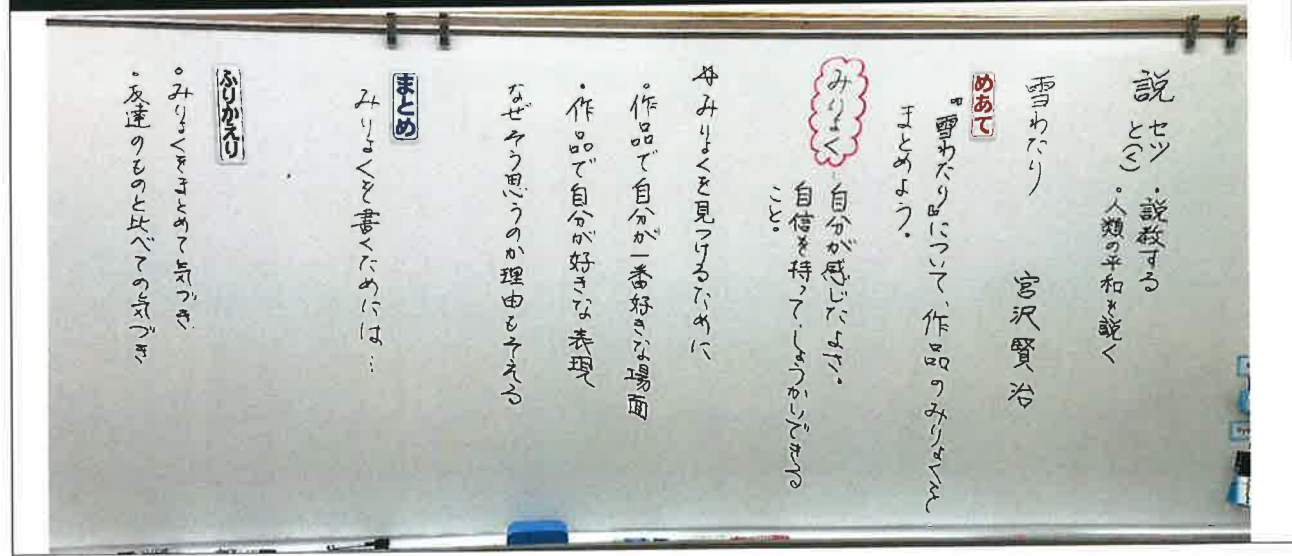 説 セツ
と(く)
・説教する
・人類の平和を説く
雪わたり 宮沢賢治
めあて
『雪わたり』について、作品のみりょくを
まとめよう。
みりょく
自分が感じたよさ。
自信を持って、しょうかいできる
こと。
みりょくを見つけるために
・作品で自分が一番好きな場面
・作品で自分が好きな表現
なぜそう思うのか理由もそえる
まとめ
みりょくを書くためには…
ふりかえり
・みりょくをまとめて気づき
・友達のものと比べての気づき